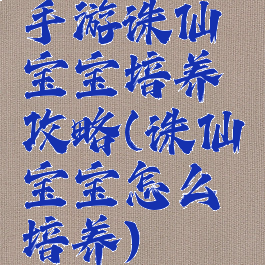 手游诛仙
宝宝培养
攻略(诛仙
宝宝怎么
培养)